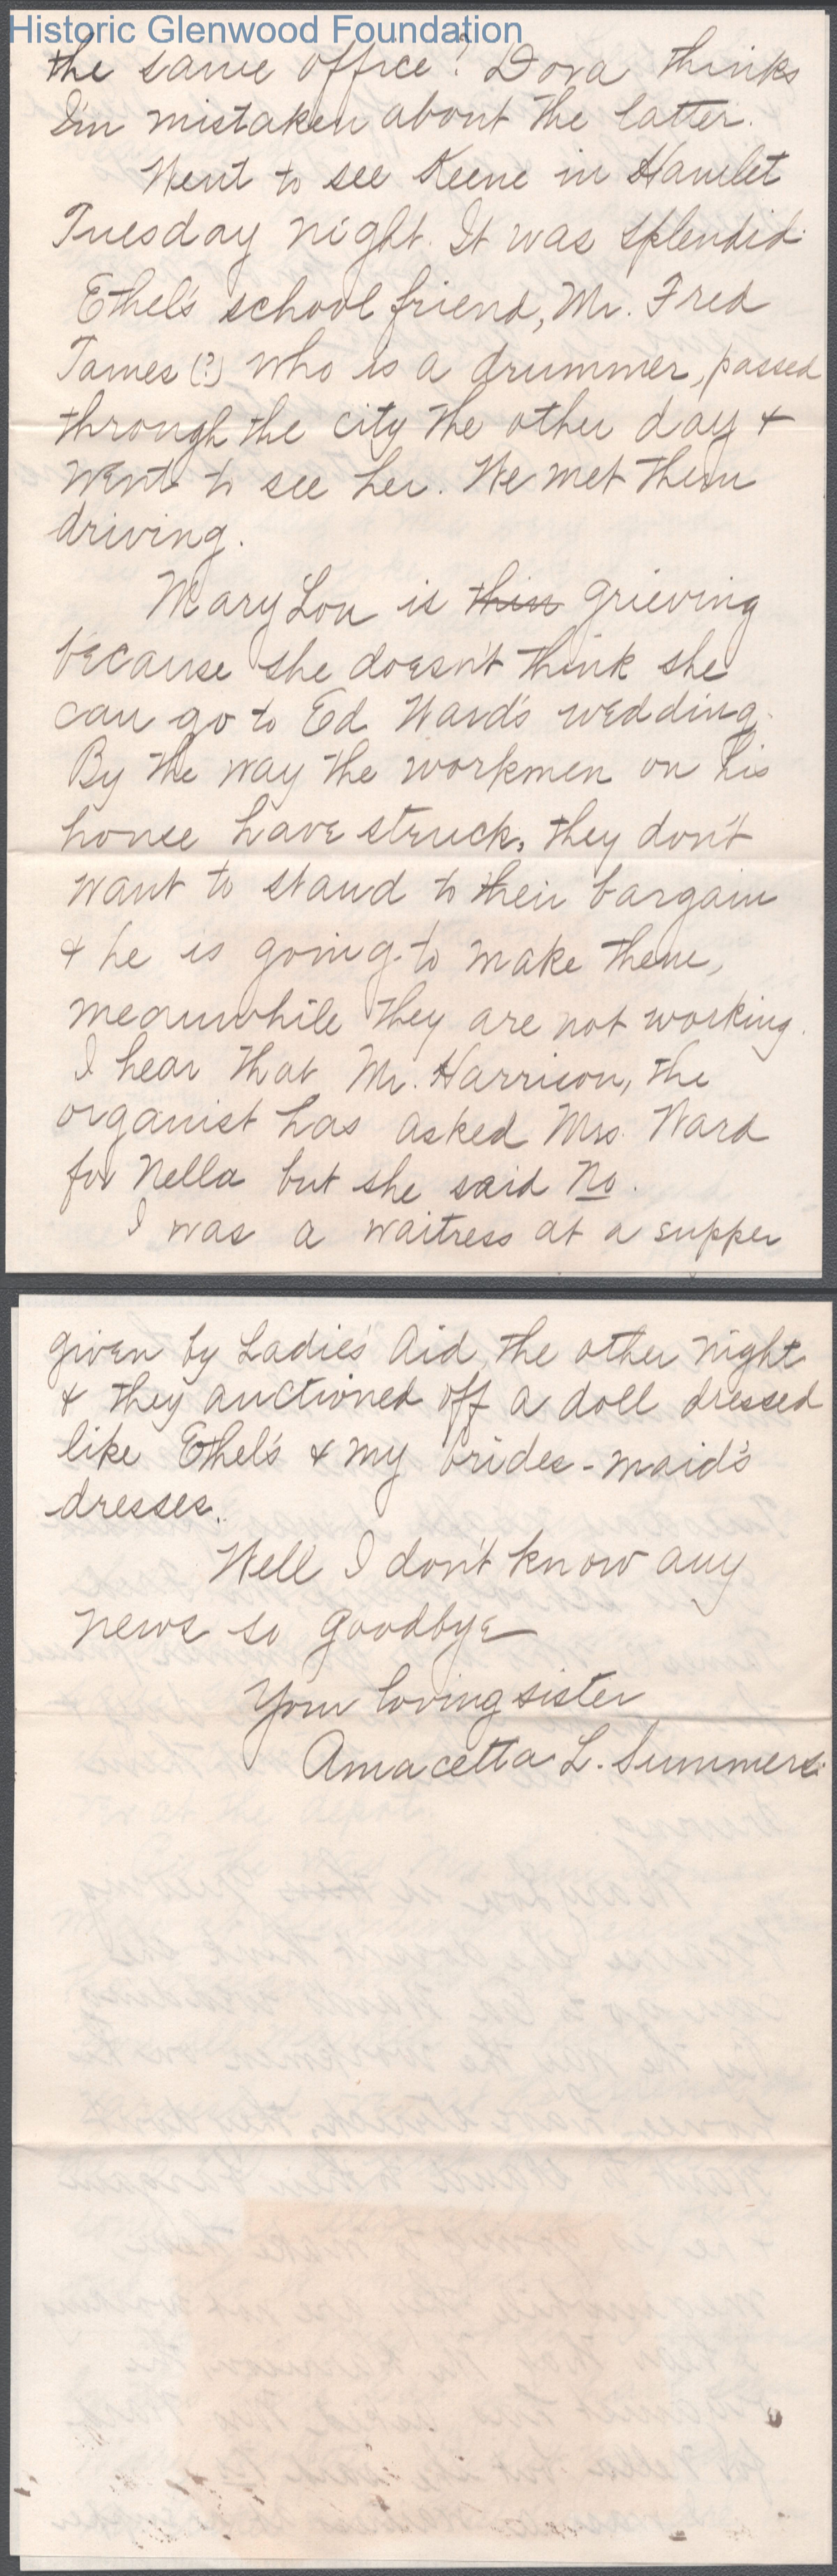 Historic Glenwood Foundation
the same office? Dora thinks
I'm mistaken about the latter.
Went to see Keene in Hamlet
Tuesday night. It was splendid.
Ethel's school friend, Mr. Fred
James (?) who is a drummer, passed
through the city the other day &
went to see her. We met them
driving.
Mary Lou is this grieving
because she doesn't think she
can go to Ed Ward's wedding.
By the way the workmen on his
house have struck, they don't
want to stand to their bargain
& he is going to make them,
meanwhile they are not working.
I hear that Mr. Harrison, the
organist has asked Mrs. Ward
for Nella but she said No.
I was a waitress at a supper
given by Ladies' Aid, the other night
& they auctioned off a doll dressed
like Ethel's & my brides-maid's
dresses.
Well I don't know any
news so goodbye
Your loving sister
Amacetta L. Summers.